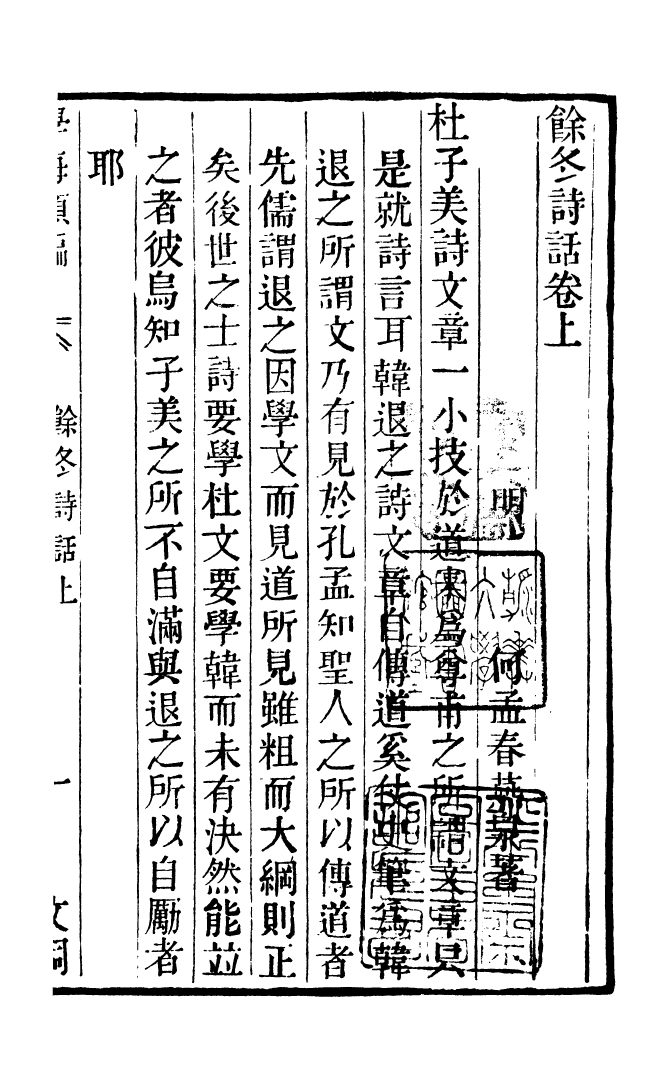 餘冬詩話卷上
明 何孟春燕泉著
杜子美詩文章一小技於道未爲尊甫之所謂文章只
是就詩言耳韓退之詩文章自傳道奚仗史筆爲韓
退之所謂文乃有見於孔孟知聖人之所以傳道者
先儒謂退之因學文而見道所見雖粗而大綱則正
矣後世之士詩要學杜文要學韓而未有決然能並
之者彼烏知子美之所不自滿與退之所以自勵者
耶
學海類編 餘冬詩話上 一